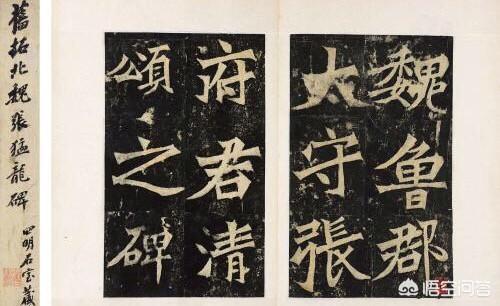 舊拓北魏張猛龍碑
四明石室藏
魏魯郡
太守張
府君清
頌之碑
悟空问答